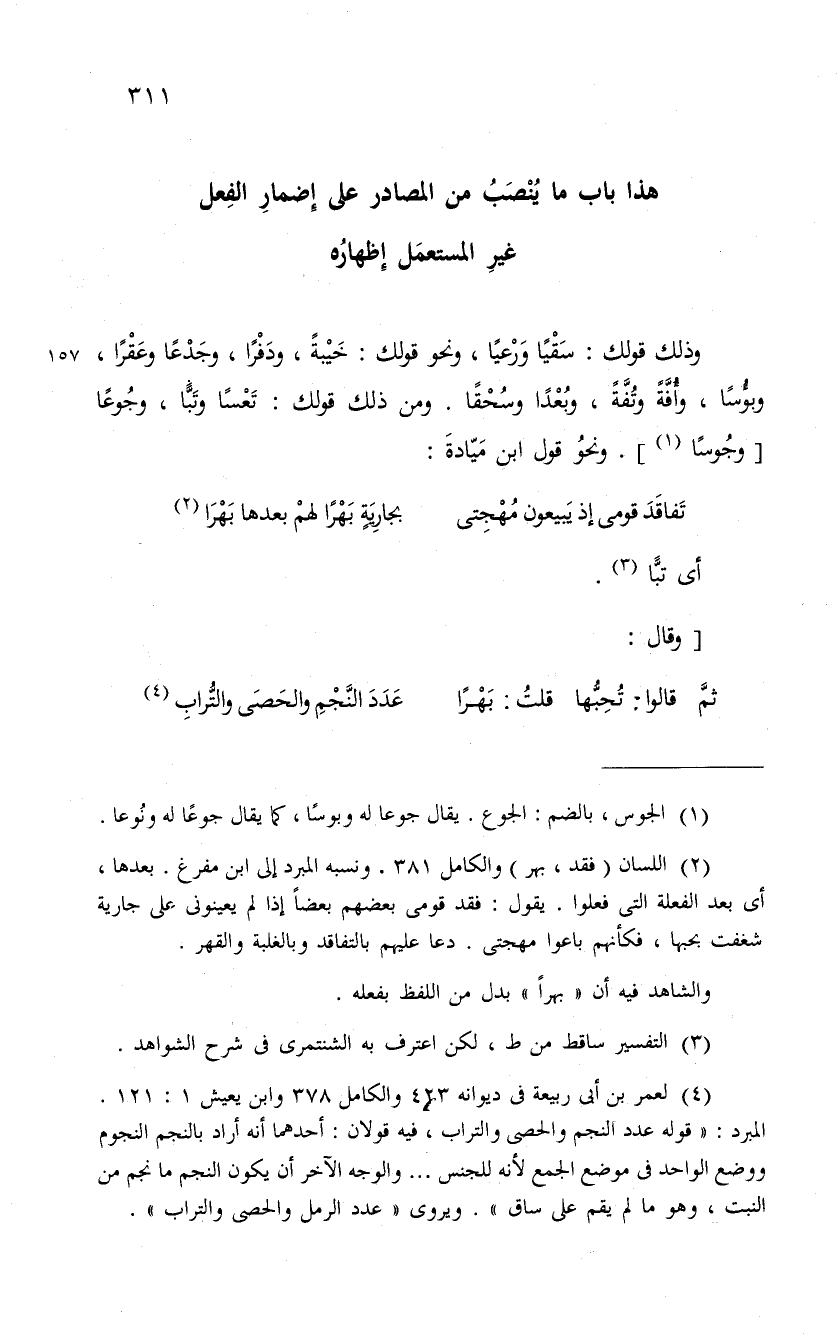 ٣١١
هذا باب ما يُنْصَبُ من المصادر على إضمارِ الفِعل
غيرِ المستعمَل إظهارُه
وذلك قولك : سَقْيًا وَرْعيًا ، ونحو قولك : خَيْبةً ، ودَفْرًا ، وجَدْعًا وعَقْرًا ، ١٥٧
وبُؤْسًا ، وأُفَّةً وتُفَّةً ، وبُعْدًا وسُحْقًا . ومن ذلك قولك : تَعْسًا وتَبًّا ، وجُوعًا
[ وجُوسًا (١) ] . ونحوُ قول ابن مَيّادةَ :
تَفاقَدَ قومى إذ يَبيعون مُهْجتِى بجارِيَةٍ بَهْرًا لهمْ بعدها بَهْرَا (٢)
أى تبًّا (٣) .
[ وقال :
ثمَّ قالوا : تُحِبُّها قلتُ : بَهْرًا عَدَدَ النَّجْمِ والحَصَى والتُّرابِ (٤)
(١) الجوس ، بالضم : الجوع . يقال جوعا له وبوسًا ، كما يقال جوعًا له ونُوعا .
(٢) اللسان ( فقد ، بهر ) والكامل ٣٨١ . ونسبه المبرد إلى ابن مفرغ . بعدها ،
أى بعد الفعلة التى فعلوا . يقول : فقد قومى بعضهم بعضاً إذا لم يعينونى على جارية
شغفت بحبها ، فكأنهم باعوا مهجتى . دعا عليهم بالتفاقد وبالغلبة والقهر .
والشاهد فيه أن « بهراً » بدل من اللفظ بفعله .
(٣) التفسير ساقط من ط ، لكن اعترف به الشنتمرى فى شرح الشواهد .
(٤) لعمر بن أبى ربيعة فى ديوانه ٤٢٣ والكامل ٣٧٨ وابن يعيش ١ : ١٢١ .
المبرد : « قوله عدد النجم والحصى والتراب ، فيه قولان : أحدهما أنه أراد بالنجم النجوم
ووضع الواحد فى موضع الجمع لأنه للجنس ... والوجه الآخر أن يكون النجم ما نجم من
النبت ، وهو ما لم يقم على ساق » . ويروى « عدد الرمل والحصى والتراب » .